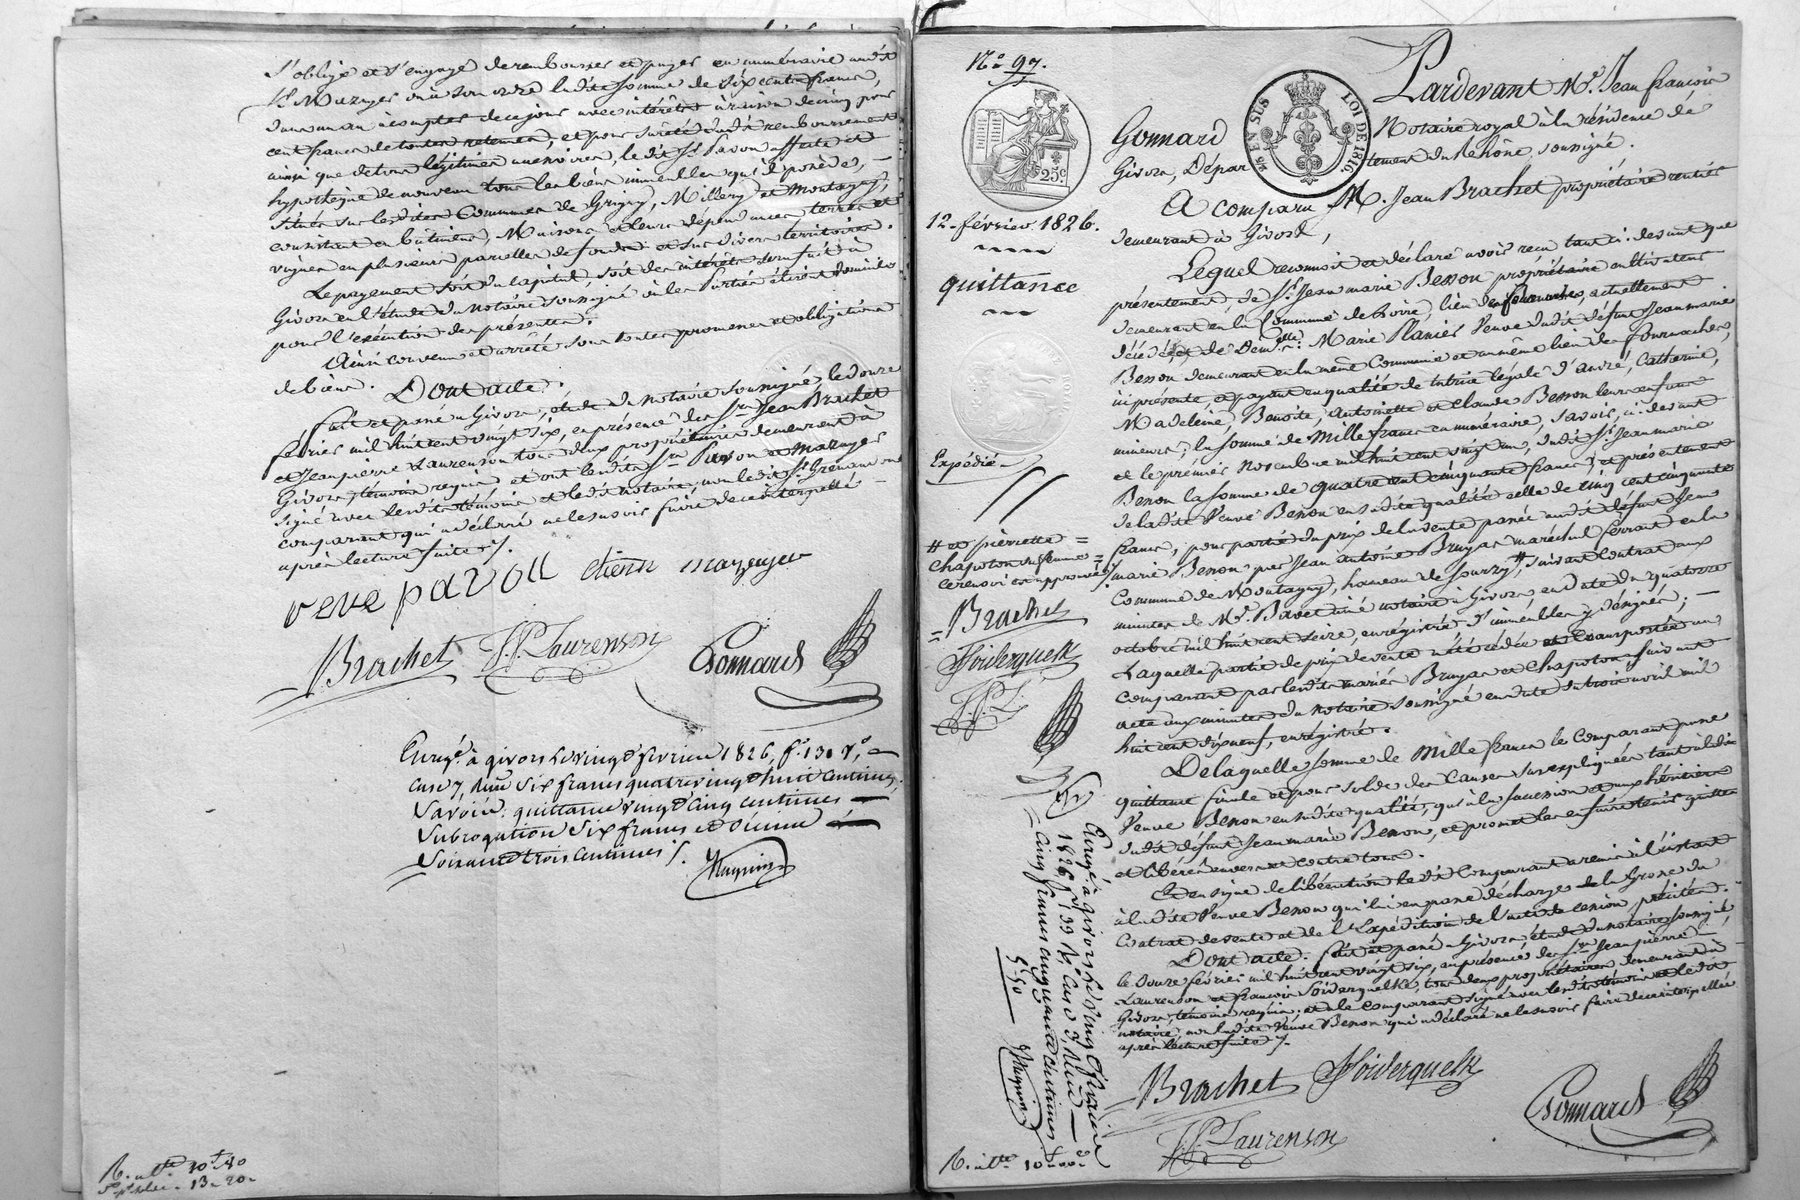 s'oblige et s'engage de rembourser et payer en numéraire audit
Sr. Mazuyer ou à son ordre ladite somme de six cents francs,
dans un an à compter de ce jour avec intérêts à raison de cinq pour
cent francs de toutes retenues, et pour sûreté dudit remboursement
ainsi que de tous légitimes accessoires, ledit Sr. Pavon affecte et
hypothèque de nouveau tous les biens immeubles qu'il possède,
situés sur lesdites Communes de Grigny, Millery et Montagny,
consistant en bâtimens, Maisons et leurs dépendances, terres et
vignes en plusieurs parcelles de fonds et sur divers territoires.
Le payement soit du capital, soit des intérêts sera fait à
Givors en l'étude du Notaire soussigné où les Parties élisent domicile
pour l'exécution des présentes.
Ainsi convenu et arrêté sous toutes promesses et obligations
de biens. Dont acte.
Fait et passé à Givors, étude du Notaire soussigné, le douze
février mil huit cent vingt six, en présence des Srs. Jean Brachet
et Jean pierre Laurenson tous deux propriétaires demeurant à
Givors, témoins requis et ont lesdits Srs. Pavon et Mazuyer
signé avec lesdits témoins et ledit notaire, non ledit Sr.
comparant qui a déclaré ne le savoir faire de ce interpellé
après lecture faite ./.
reve pavon etiene mazuyer
Brachet J. P. Laurenson Gonnard
Enregé. à givors le vingt fevrier 1826, f° 130 Vo.
case 7, Reçu six francs quatre vingt huit centimes.
Savoir: quittance vingt cinq centimes
Subrogation Six francs et Décime
Soixante trois centimes ./.
N° 97.
12. février 1826.
quittance
Expédié
25c.
25 EN SUS
LOI DE 1816.
Pardevant Me. Jean françois
Gonnard Notaire royal à la résidence de
Givors, Département du Rhône, soussigné.
A comparu M. Jean Brachet propriétaire rentier
demeurant à Givors,
Lequel reconnoit et déclare avoir reçu tant ci-devant que
présentement, de Sr. Jean marie Besson propriétaire cultivateur
demeurant en la Commune de Loire, lieu des fournaches, actuellement
décédé, et de Demelle. Marie Planier Veuve dudit défunt Jean marie
Besson demeurant en la même Commune et au même lieu des fournaches,
ici présente, et payant en qualité de tutrice légale d'andré, Catherine,
Madeleine, Benoite, Antoinette et Claude Besson leurs enfans
mineurs, la somme de Mille francs en numéraire, savoir, ci-devant
et le premier Novembre mil huit cent vingt un, dudit Sr. Jean marie
Besson la somme de quatre cent cinquante francs, et présentement
de ladite Veuve Besson en sadite qualité celle de cinq cent cinquante
francs, pour partie du prix de la vente passée audit défunt Jean
marie Besson par Jean antoine Bruyas maréchal ferrant en la
Commune de Montagny, hameau de Sourzy #, suivant Contrat aux
minutes de Me. Bavet ainé notaire à Givors, en date du quatorze
octobre mil huit cent seize, enregistré d'immeubles y désignés;
Laquelle partie de prix de vente a été cédée et transportée au
comparant par lesdits mariés Bruyas et Chapoton suivant
acte aux minutes du Notaire soussigné en date du trois avril mil
huit cent dix neuf, enregistré.
De laquelle somme de Mille francs le Comparant passe
quittance finale et pour solde des causes susexpliquées tant à ladite
Veuve Besson en sadite qualité, qu'à la succession et aux héritiers
dudit défunt Jean marie Besson, et promet les en faire tenir quittes
et libérés envers et contre tous.
Et en signe de libération ledit Comparant a remis à l'instant
à ladite Veuve Besson qui lui en passe décharge de la Grosse du
Contrat de vente et de l'Expédition de l'acte de cession précités.
Dont acte. fait et passé à Givors, étude du notaire soussigné,
le douze février mil huit cent vingt six, en présence des Srs. Jean pierre
Laurenson et françois Soiderquelk, tous deux propriétaires demeurant à
Givors, témoins requis; et a le comparant signé avec lesdits témoins et ledit
notaire, non ladite Veuve Besson qui a déclaré ne le savoir faire de ce interpellée
après lecture faite ./.
# et pierrette
Chapoton sa femme
ce renvoi est approuvé
Brachet
Soiderquelk
J. P. L.
Enregé. à givors le vingt fevrier
1826, f° 133 Vo. Case 3, Reçu
cinq francs cinquante centimes
5.50
Brachet Soiderquelk
J. P. Laurenson Gonnard